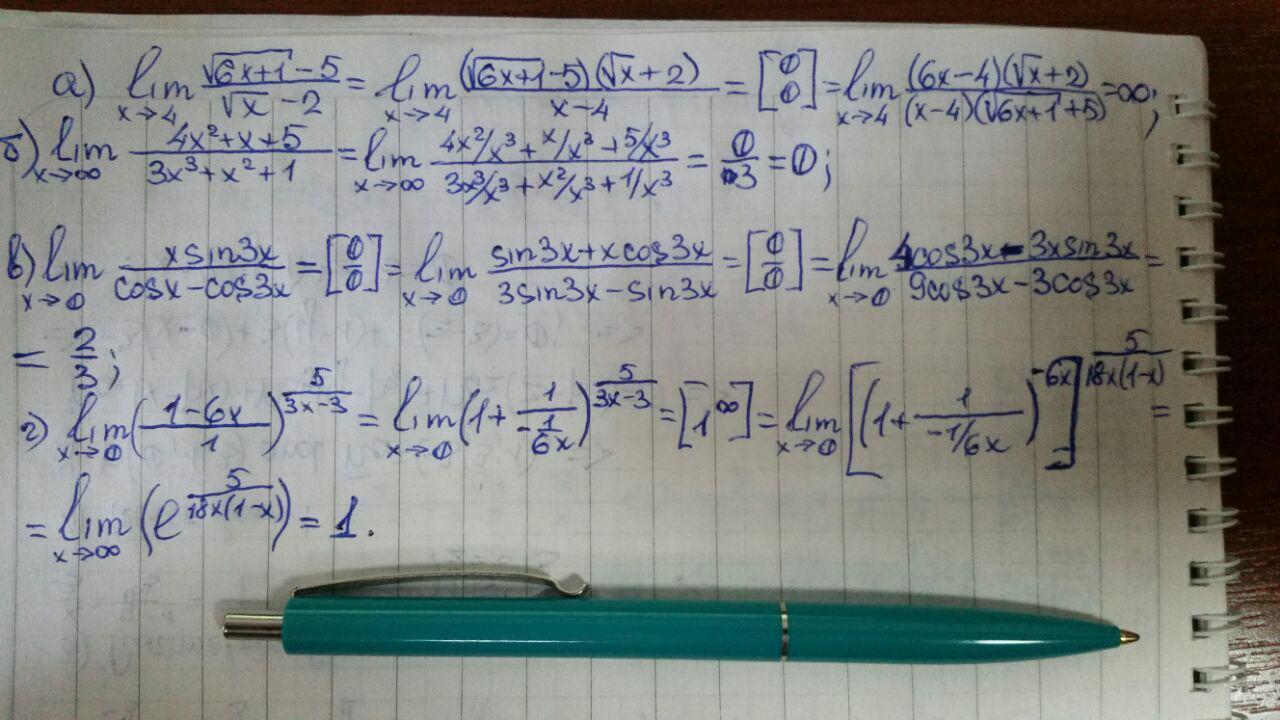 а) lim x→4 (√(6x+1) - 5)/(√x - 2) = lim x→4 ((√(6x+1) - 5)(√x + 2))/(x-4) = [0/0] = lim x→4 ((6x-4)(√x + 2))/((x-4)(√(6x+1) + 5)) = ∞;
б) lim x→∞ (4x²+x+5)/(3x³+x²+1) = lim x→∞ (4x²/x³ + x/x³ + 5/x³)/(3x³/x³ + x²/x³ + 1/x³) = 0/3 = 0;
в) lim x→0 (x sin3x)/(cosx - cos3x) = [0/0] = lim x→0 (sin3x + x cos3x)/(3sin3x - sin3x) = [0/0] = lim x→0 (4cos3x - 3x sin3x)/(9cos3x - 3cos3x) =
= 2/3;
г) lim x→0 ((1-6x)/1)^(5/(3x-3)) = lim x→0 (1 + 1/(-1/6x))^(5/(3x-3)) = [1^∞] = lim x→0 [(1 + 1/(-1/6x))^(-6x)]^(5/(18x(1-x))) =
= lim x→∞ (e^(5/(18x(1-x)))) = 1.